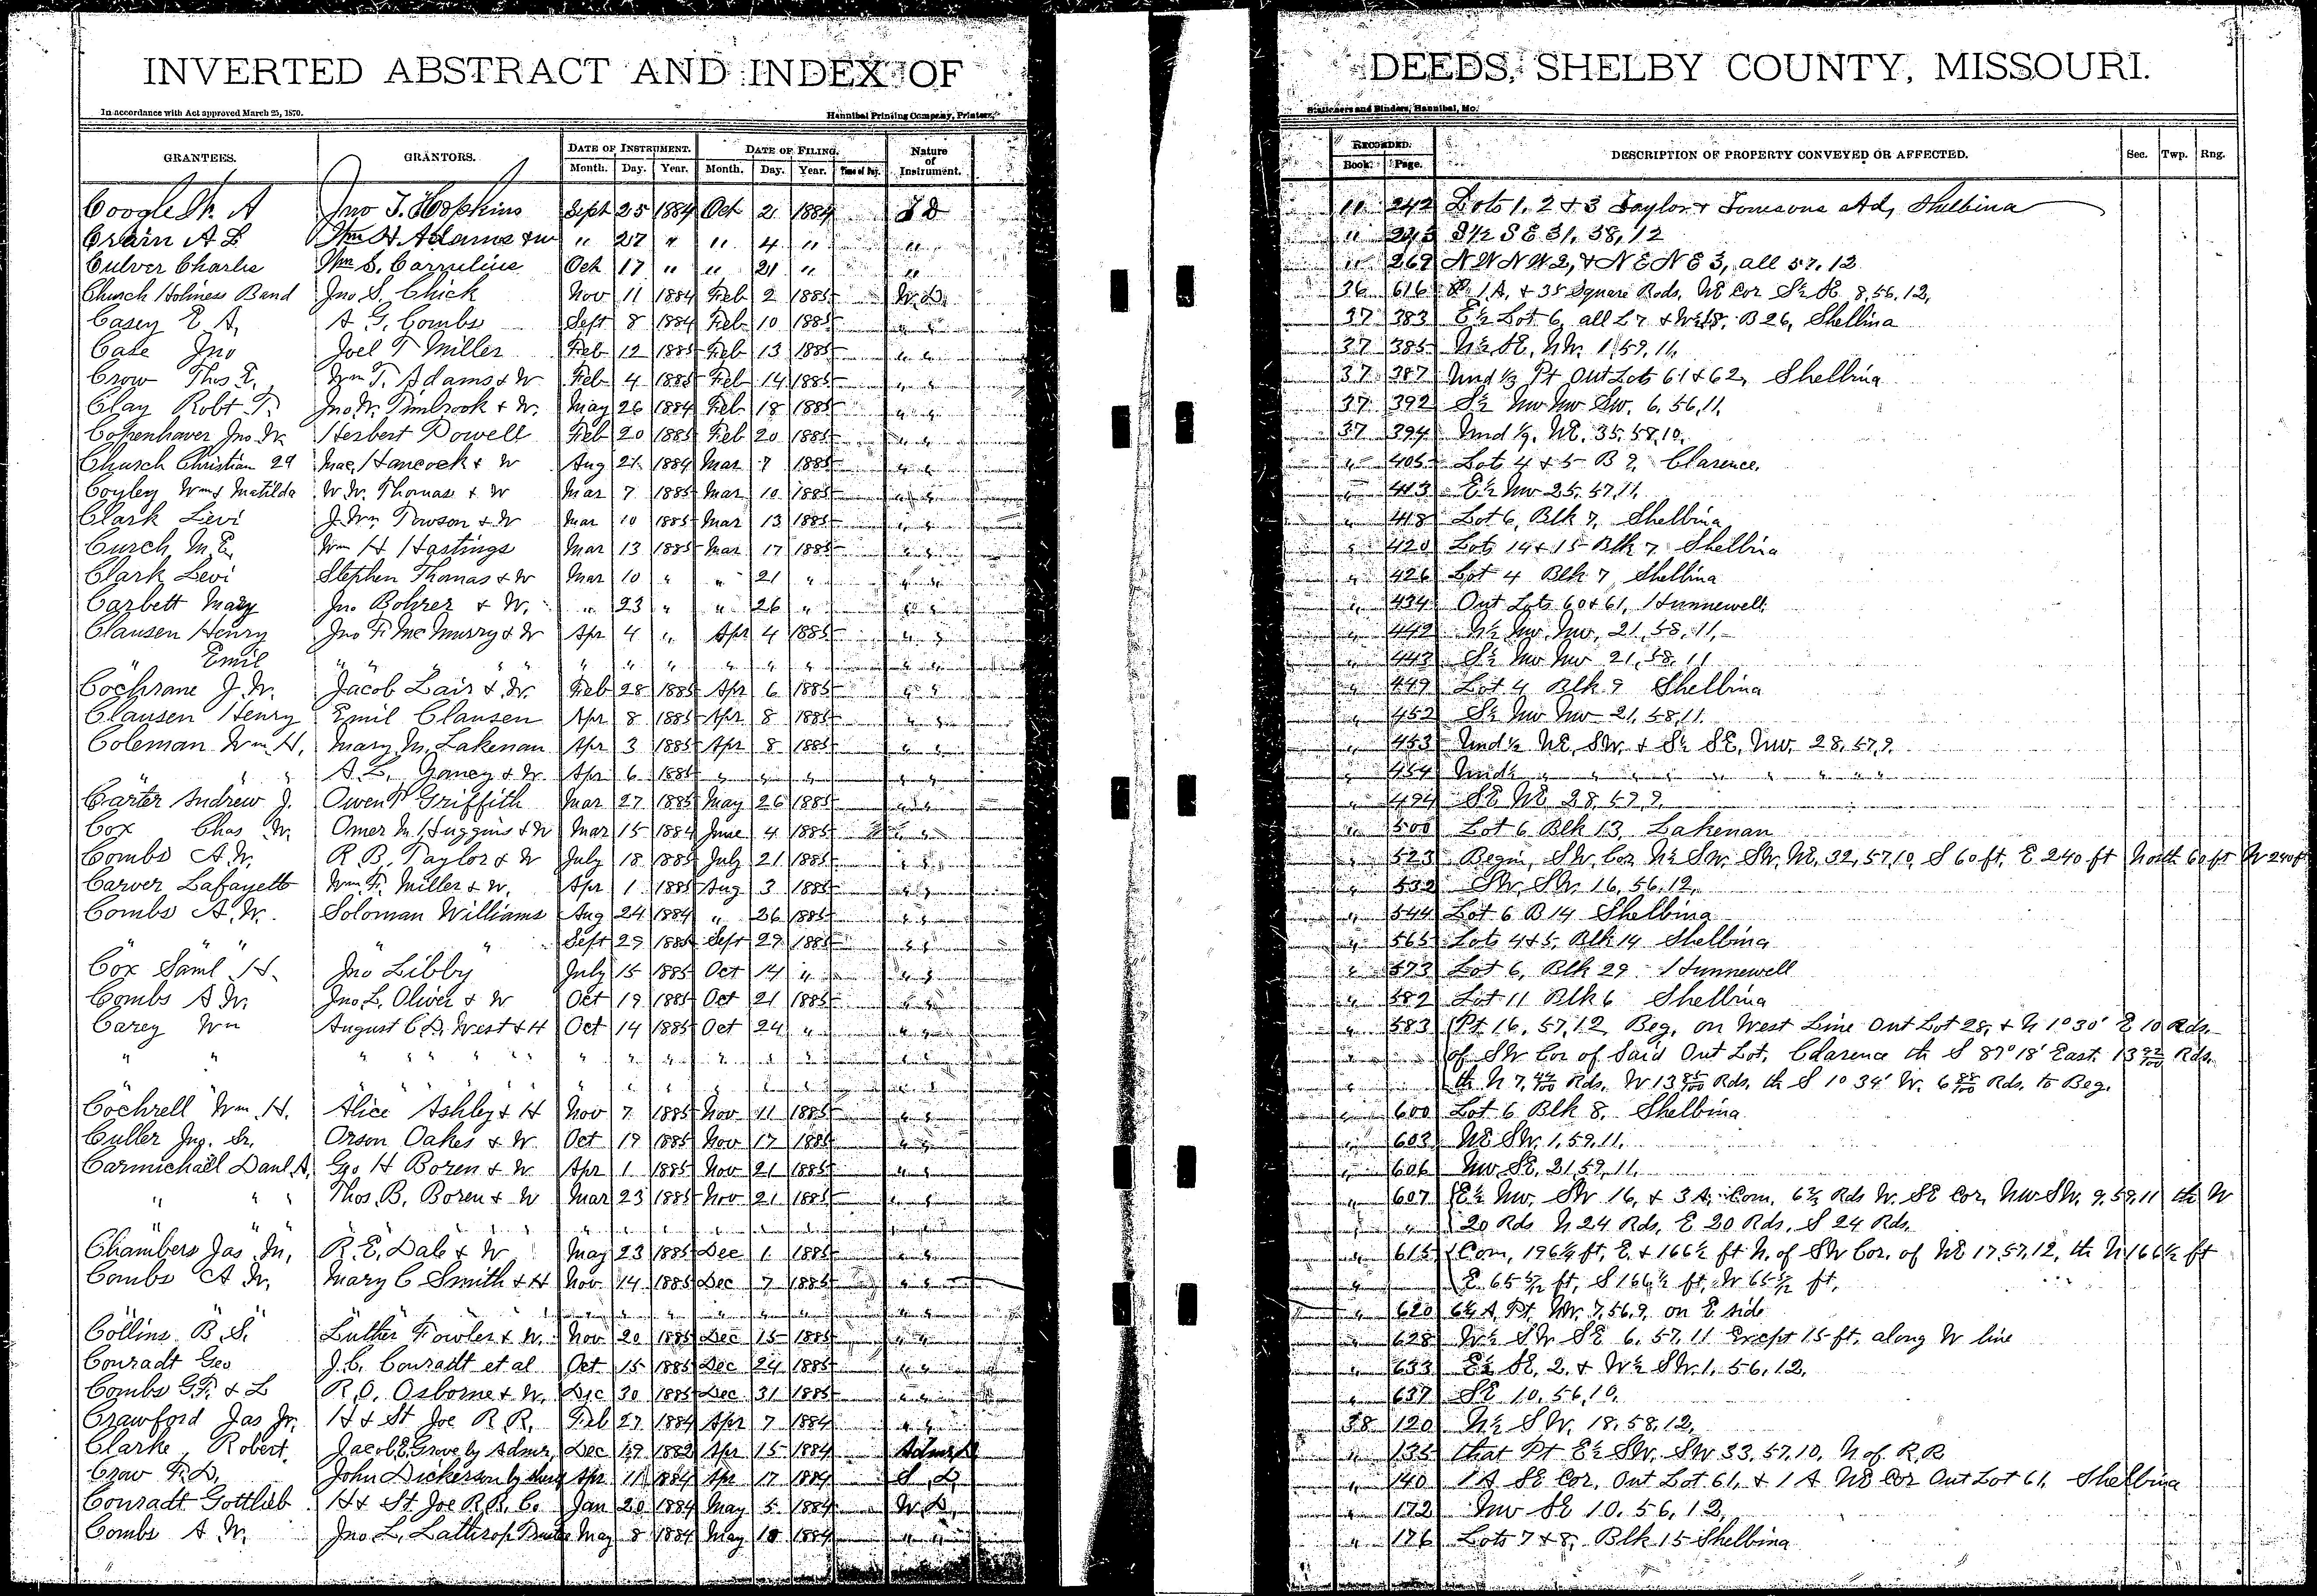 INVERTED ABSTRACT AND INDEX OF DEEDS, SHELBY COUNTY, MISSOURI.
In accordance with Act approved March 25, 1870. Hannibal Printing Company, Printers, Stationers and Binders, Hannibal, Mo.
GRANTEES. GRANTORS. DATE OF INSTRUMENT. DATE OF FILING. Nature of Instrument. RECORDED. DESCRIPTION OF PROPERTY CONVEYED OR AFFECTED. Sec. Twp. Rng.
Month. Day. Year. Month. Day. Year. Time of Day. Book. Page.
Coogle A Jno T. Hopkins Sept 25 1884 Oct 2 1884 11 242 Lots 1, 2 & 3 Taylor & Ad, Shelbina
Crain A L Wm H Adams & w " 27 " " 4 " " " 245 S½ SE 31, 58, 12
Culver Charles Wm S. Oct 17 " " 21 " " " 269 NW NW 2, & NE NE 3, all 57, 12
Church Holiness Band Jno S. Chick Nov 11 1884 Feb 2 1885 W.D. 36 616 1 A. & 35 Square Rods, NE Cor S½ SE 8, 56, 12,
Casey E A, A G. Combs Sept 8 1884 Feb 10 1885 " " 37 383 E½ Lot 6, all L 7 & W½ 8, B 26, Shelbina
Case Jno Joel T Miller Feb 12 1885 Feb 13 1885 " " 37 385 N½ SE, NW. 1, 59, 11,
Crow Thos E, Wm T. Adams & W Feb 4 1885 Feb 14 1885 " " 37 387 Und ⅓ Pt Out Lots 61 & 62, Shelbina
Clay Robt T. Jno. W. Timbrook & W. May 26 1884 Feb 18 1885 " " 37 392 S½ NW NW SW. 6, 56, 11,
Copenhaver Jno. W. Herbert Powell Feb 20 1885 Feb 20 1885 " " 37 394 Und 1/9, NE. 35, 58, 10,
Church Christian 29 Mac, Hancock & W Aug 21 1884 Mar 7 1885 " " " 405 Lot 4 & 5 B 2, Clarence,
Coyley Wm & Matilda W. W. Thomas & W Mar 7 1885 Mar 10 1885 " " " 413 E½ NW 25, 57, 11,
Clark Levi J. Wm Towson & W Mar 10 1885 Mar 13 1885 " " " 418 Lot 6, Blk 7, Shelbina
Curch, M. E, Wm H Hastings Mar 13 1885 Mar 17 1885 " " " 420 Lots 14 & 15 Blk 7 Shelbina
Clark Levi Stephen Thomas & W Mar 10 " " 21 " " " " 426 Lot 4 Blk 7, Shelbina
Carbett Mary Jno Bohrer & W. " 23 " " 26 " " " " 434 Out Lots 60 & 61, Hunnewell
Clausen Henry Jno F. McMurry & W Apr 4 " Apr 4 1885 " " " 442 N½ NW. NW, 21, 58, 11,
" Emil " " " " " " " " " " " " " 443 S½ NW NW 21, 58, 11
Cochrane J. W. Jacob Lair & W. Feb 28 1885 Apr 6 1885 " " " 449 Lot 4 Blk 9 Shelbina
Clausen Henry Emil Clausen Apr 8 1885 Apr 8 1885 " " " 452 S½ NW NW 21, 58, 11.
Coleman Wm H, Mary M. Lakenan Apr 3 1885 Apr 8 1885 " " " 453 Und ½ NE, SW. & S½ SE, NW. 28, 57, 9.
" " " A. L. Yancy & W. Apr 6 1885 " " " " " " 454 Und½ " " " " " " " " "
Carter Andrew J. Owen P Griffith Mar 27 1885 May 26 1885 " " " 494 SE NE 28, 59, 9,
Cox Chas W. Omer M. Huggins & W Mar 15 1884 June 4 1885 " " " 500 Lot 6 Blk 13, Lakenan
Combs A. W. R. B. Taylor & W July 18 1885 July 21 1885 " " " 523 Begin, SW. Cor N½ SW. SW. NE, 32, 57, 10, S 60 ft. E 240 ft North 60 ft W 240 ft
Carver Lafayette Wm. F. Miller & W. Apr 1 1885 Aug 3 1885 " " " 532 SW. SW. 16, 56, 12,
Combs A. W. Soloman Williams Aug 24 1884 " 26 1885 " " " 544 Lot 6 B 14 Shelbina
" " " " " Sept 29 1885 Sept 29 1885 " " " 565 Lots 4 & 5, Blk 14 Shelbina
Cox Saml H. Jno Libby July 15 1885 Oct 14 " " " " 573 Lot 6, Blk 29 Hunnewell
Combs A W. Jno L. Oliver & W Oct 19 1885 Oct 21 1885 " " " 582 Lot 11 Blk 6 Shelbina
Carey Wm August C. D. West & H Oct 14 1885 Oct 24 " " " " 583 Pt 16, 57, 12 Beg, on West Line Out Lot 28, & N 1° 30' E 10 Rds.
" " " " " " " " " " " " " " " " of SW Cor of Said Out Lot, Clarence th S 87° 18' East 13 92/100 Rds.
" " " " " " " " 1885 " " " th N 7, 44/100 Rds, W 13 85/100 Rds, th S 1° 34' W. 6 88/100 Rds, to Beg.
Cochrell Wm. H. Alice Ashley & H Nov 7 1885 Nov 11 1885 " " " 600 Lot 6 Blk 8, Shelbina
Culler Jno. Sr. Orson Oakes & W. Oct 19 1885 Nov 17 1885 " " " 603 NE SW. 1, 59, 11,
Carmichael Danl A, Geo H Boren & W. Apr 1 1885 Nov 21 1885 " " " 606 NW SE, 21, 59, 11,
" " " Thos. B, Boren & W Mar 23 1885 Nov 21 1885 " " " 607 E½ NW. SW 16, & 3 A. Com, 6½ Rds W. SE Cor, NW SW. 9, 59, 11 th W
" " " " " " " " " " " " " " " 20 Rds N 24 Rds, E 20 Rds, S 24 Rds,
Chambers Jas M, R. E, Dale & W May 23 1885 Dec 1 1885 " " " 615 Com, 196½ ft, E. & 166½ ft N. of SW Cor. of NE 17, 57, 12, th N 166½ ft
Combs A W. Mary C Smith & H Nov 14 1885 Dec 7 1885 " " " E 65 5/12 ft, S 166½ ft, W 65 5/12 ft,
" " " " " " " " " " " " " 620 6¼ A, Pt, NW. 7, 56, 9, on E side
Collins B. S. Luther Fowler & W. Nov 20 1885 Dec 15 1885 " " " 628 W½ SW SE 6, 57, 11 Except 15 ft, along W line
Conradt Geo J. C. Conradt et al Oct 15 1885 Dec 24 1885 " " " 633 E½ SE, 2, & W½ SW. 1, 56, 12,
Combs G. T. & L R. O. Osborne & W. Dec 30 1885 Dec 31 1885 " " " 637 SE 10, 56, 10,
Crawford Jas Jr. H & St Joe R. R. Feb 27 1884 Apr 7 1884 " " 38 120 N½ SW. 18, 58, 12,
Clarke, Robert. Jacob E, Grove by Admr, Dec 19 1882 Apr 15 1884 Admr D " 135 that Pt E½ SW. SW 33, 57, 10, N of R. R
Crow T. D, John Dickerson by Apr 11 1884 Apr 17 1884 S. D, " 140 1 A SE Cor, Out Lot 61, & 1 A NE Cor Out Lot 61, Shelbina
Conradt Gottlieb H & St. Joe R. R. Co Jan 20 1884 May 5 1884 W. D, " 172 NW SE 10, 56, 12,
Combs A W. Jno L. Lathrop Trustee May 8 1884 May 10 1884 " " " 176 Lots 7 & 8, Blk 15 Shelbina